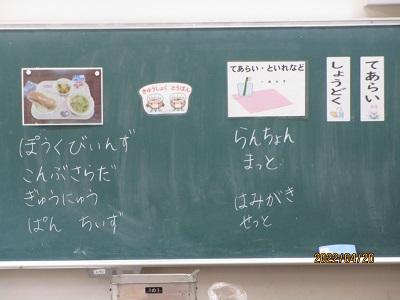 きゅうしょく とうばん
てあらい・といれなど
しょうどく
てあらい
ぽうくびいんず
こんぶさらだ
ぎゅうにゅう
ぱん ちいず
らんちょん
まっと
はみがき
せっと
2022/04/20